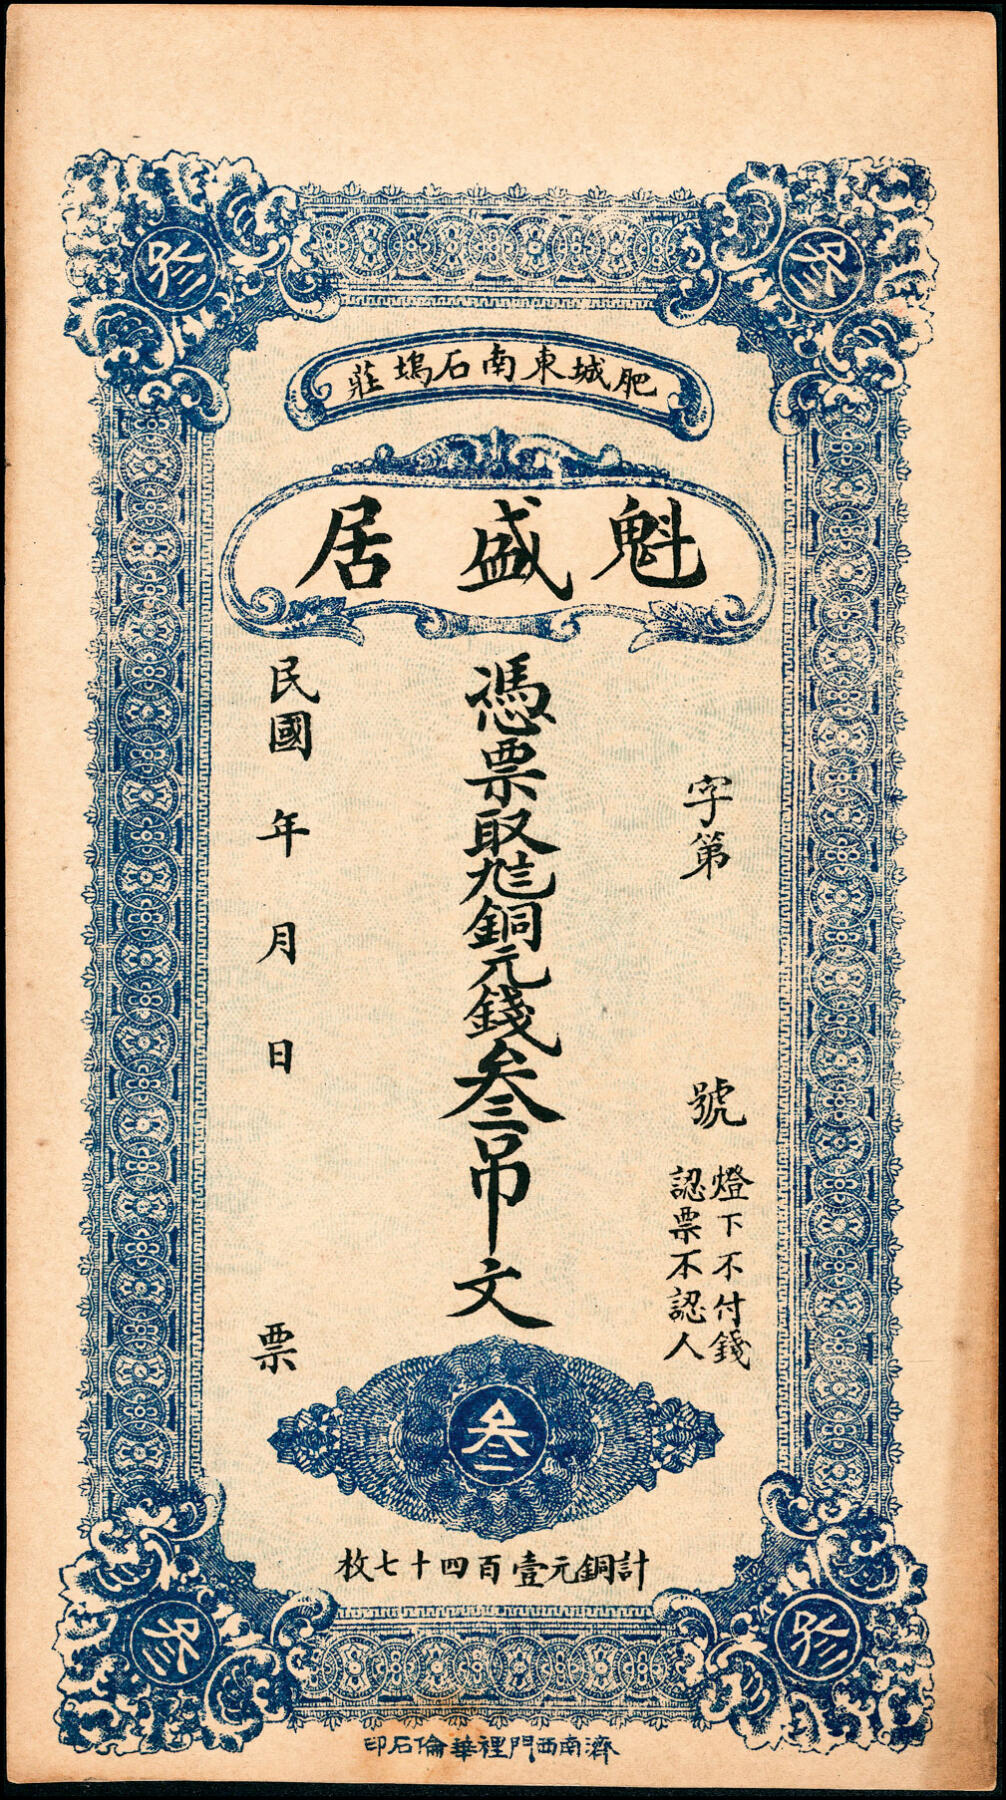 叁
叁
肥城東南石塢莊
魁盛居
字第　號
燈下不付錢
認票不認人
憑票取九八銅元錢叁吊文
民國　年　月　日　票
叁
計銅元壹百四十七枚
叁
叁
濟南西門裡華倫石印